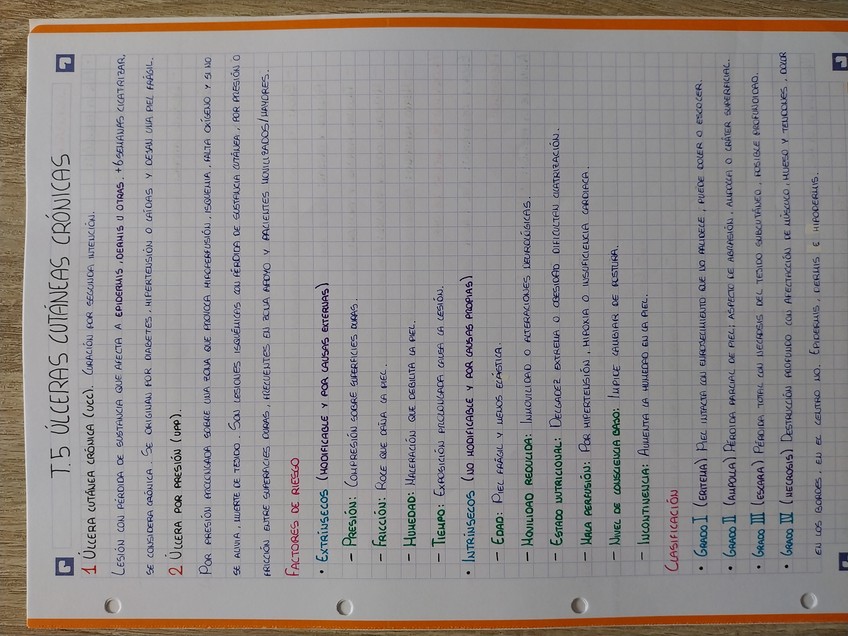 T.5 ÚLCERAS CUTÁNEAS CRÓNICAS
1 ÚLCERA CUTÁNEA CRÓNICA (UCC). CURACIÓN POR SEGUNDA INTENCIÓN.
LESIÓN CON PÉRDIDA DE SUSTANCIA QUE AFECTA A EPIDERMIS, DERMIS U OTRAS. +6 SEMANAS CICATRIZAR,
SE CONSIDERA CRÓNICA. SE ORIGINAN POR DIABETES, HIPERTENSIÓN O CAÍDAS Y DEJAN UNA PIEL FRÁGIL.
2 ÚLCERA POR PRESIÓN (UPP).
POR PRESIÓN PROLONGADA SOBRE UNA ZONA QUE PROVOCA HIPOPERFUSIÓN, ISQUEMIA, FALTA OXÍGENO Y SI NO
SE ALIVIA, MUERTE DE TEJIDO. SON LESIONES ISQUÉMICAS CON PÉRDIDA DE SUSTANCIA CUTÁNEA, POR PRESIÓN O
FRICCIÓN ENTRE SUPERFICIES DURAS, FRECUENTES EN ZONA APOYO Y PACIENTES INMOVILIZADOS/MAYORES.
FACTORES DE RIESGO
• EXTRÍNSECOS (MODIFICABLE Y POR CAUSAS EXTERNAS)
– PRESIÓN: COMPRESIÓN SOBRE SUPERFICIES DURAS
– FRICCIÓN: ROCE QUE DAÑA LA PIEL.
– HUMEDAD: MACERACIÓN QUE DEBILITA LA PIEL.
– TIEMPO: EXPOSICIÓN PROLONGADA CAUSA LA LESIÓN.
• INTRÍNSECOS (NO MODIFICABLE Y POR CAUSAS PROPIAS)
– EDAD: PIEL FRÁGIL Y MENOS ELÁSTICA.
– MOVILIDAD REDUCIDA: INMOVILIDAD O ALTERACIONES NEUROLÓGICAS.
– ESTADO NUTRICIONAL: DELGADEZ EXTREMA O OBESIDAD DIFICULTAN CICATRIZACIÓN.
– MALA PERFUSIÓN: POR HIPERTENSIÓN, HIPOXIA O INSUFICIENCIA CARDIACA.
– NIVEL DE CONSCIENCIA BAJO: IMPIDE CAMBIAR DE POSTURA.
– INCONTINENCIA: AUMENTA LA HUMEDAD EN LA PIEL.
CLASIFICACIÓN
• GRADO I (ERITEMA) PIEL INTACTA CON ENROJECIMIENTO QUE NO PALIDECE, PUEDE DOLER O ESCOCER.
• GRADO II (AMPOLLA) PÉRDIDA PARCIAL DE PIEL; ASPECTO DE ABRASIÓN, AMPOLLA O CRÁTER SUPERFICIAL.
• GRADO III (ESCARA) PÉRDIDA TOTAL CON NECROSIS DEL TEJIDO SUBCUTÁNEO, POSIBLE PROFUNDIDAD.
• GRADO IV (NECROSIS) DESTRUCCIÓN PROFUNDO CON AFECTACCIÓN DE MÚSCULO, HUESO Y TENDONES, DOLOR
EN LOS BORDES, EN EL CENTRO NO. EPIDERMIS, DERMIS E HIPODERMIS.